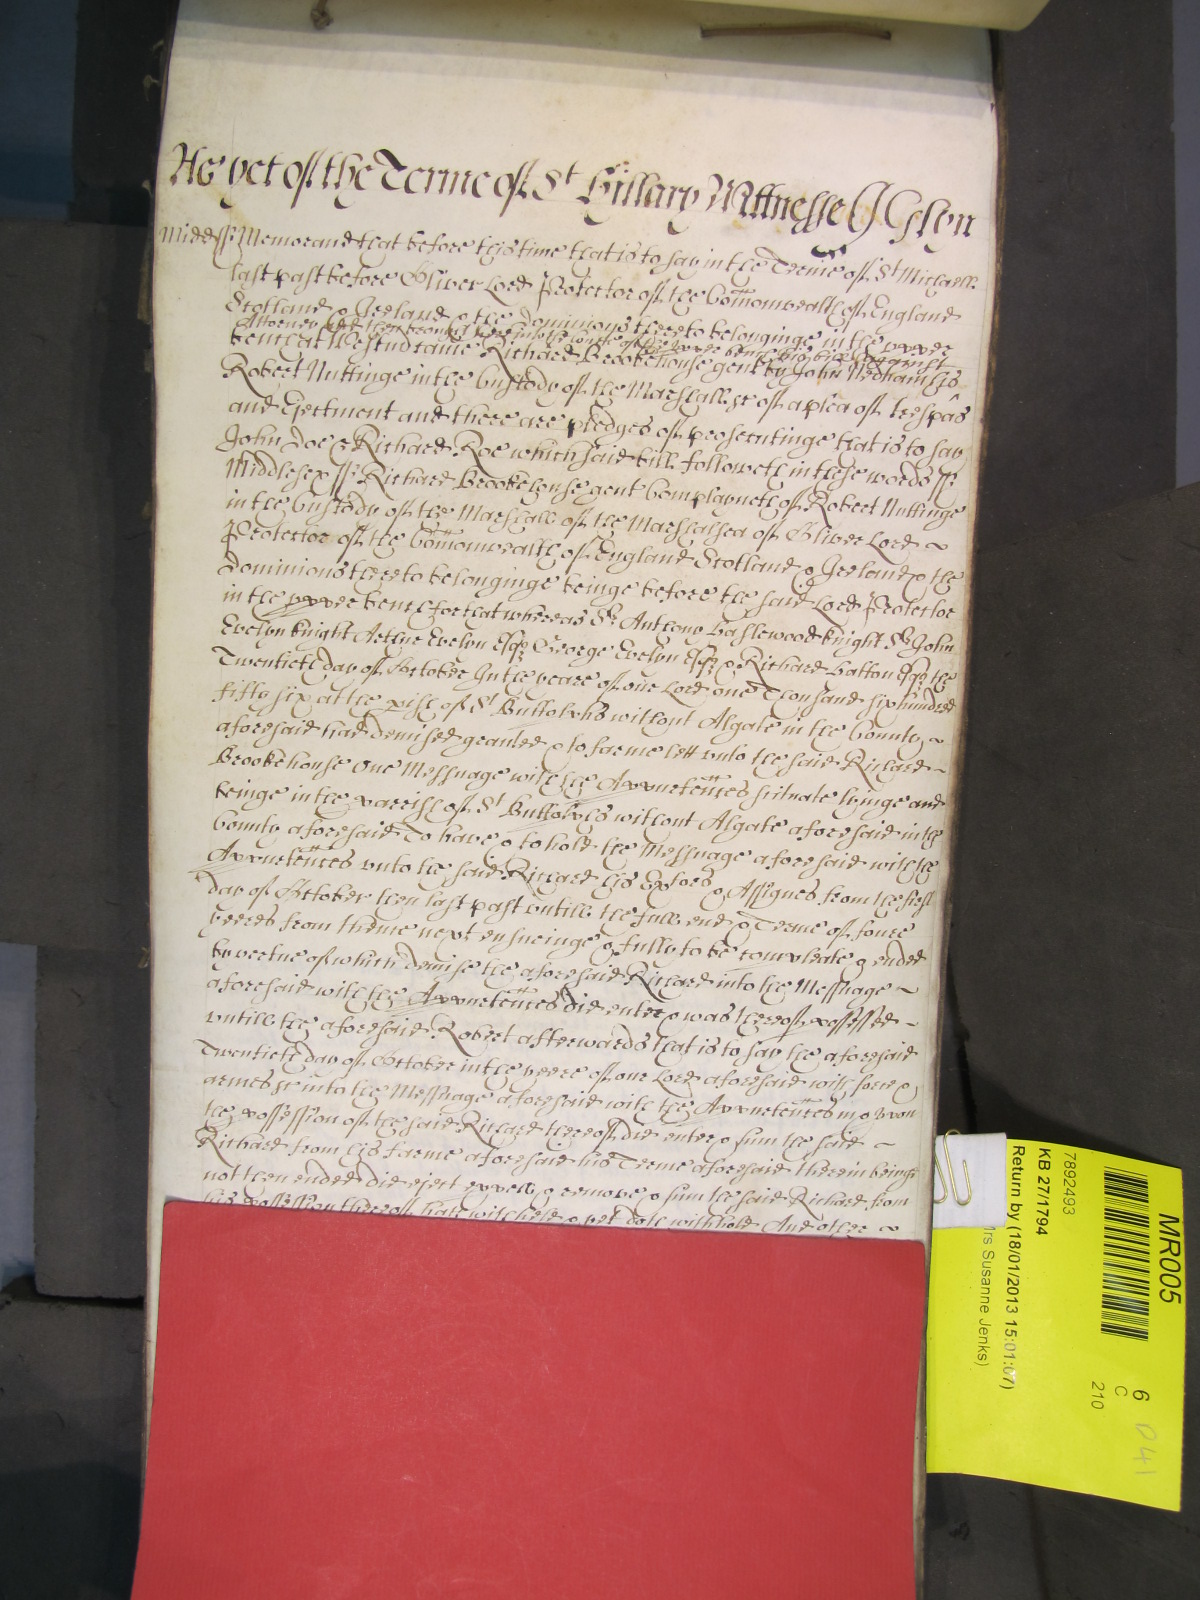 As yet of the Terme of St Hillary Wittnesse J Glyn
Midds ss Memorand that before this time that is to say in the Terme of St Michaell
last past before Oliver Lord Protector of the Comonwealth of England
Scotland & Ireland & the dominions thereto belonginge in the upper
Attorney and then brought here into the Court of the upper bench his bill against
bench at Westm came Richard Brookehouse gent by John Nedham his
Robert Nuttinge in the Custody of the Marshall &c of a plea of trespas
and Ejectment and there are pledges of prosecutinge that is to say
John Doe & Richard Roe which said bill followeth in these words ss
Middlesex ss Richard Brookehouse gent Complayneth of Robert Nuttinge
in the Custody of the Marshall of the Marshalsea of Oliver Lord
Protector of the Comonwealth of England Scotland & Ireland & the
dominions thereto belonginge beinge before the said Lord Protector
in the upper bench for that whereas Sr Anthony Haslewood knight Sr John
Evelyn knight Arthur Evelyn Esqr George Evelyn Esqr & Richard Hatton Esqr the
Twentieth day of October In the yeare of our Lord one Thousand six hundred
fifty six at the pish of St Buttolphs without Algate in the County
aforesaid had demised graunted & to farme lett unto the said Richard
Brookehouse One Messuage with the Appurtetnces scituate lyinge and
beinge in the parrish of St Buttolphs without Algate aforesaid in the
County aforesaid To have & to hold the Messuage aforesaid with the
Appurtetnces unto the said Richard his Exors & Assignes from the first
day of October then last past untill the full end & Terme of foure
yeeres from thence next ensueinge & fully to be compleate & ended
by vertue of which demise the aforesaid Richard into the Messuage
aforesaid with the Appurtetnces did enter & was thereof possessed
untill the aforesaid Robert afterwards that is to say the aforesaid
Twentieth day of October in the yeere of our Lord aforesaid with force &
armes &c into the Messuage aforesaid with the Appurtetnces in & upon
the possession of the said Richard thereof did enter & him the said
Richard from his farme aforesaid his Terme aforesaid therein beinge
not then ended did eject expell & remove & him the said Richard from
his possession thereof hath witheld & yet doth withhold And other
MR005
6
C
210
D41
7892493
KB 27/1794
Return by (18/01/2013 15:01:07)
Mrs Susanne Jenks)